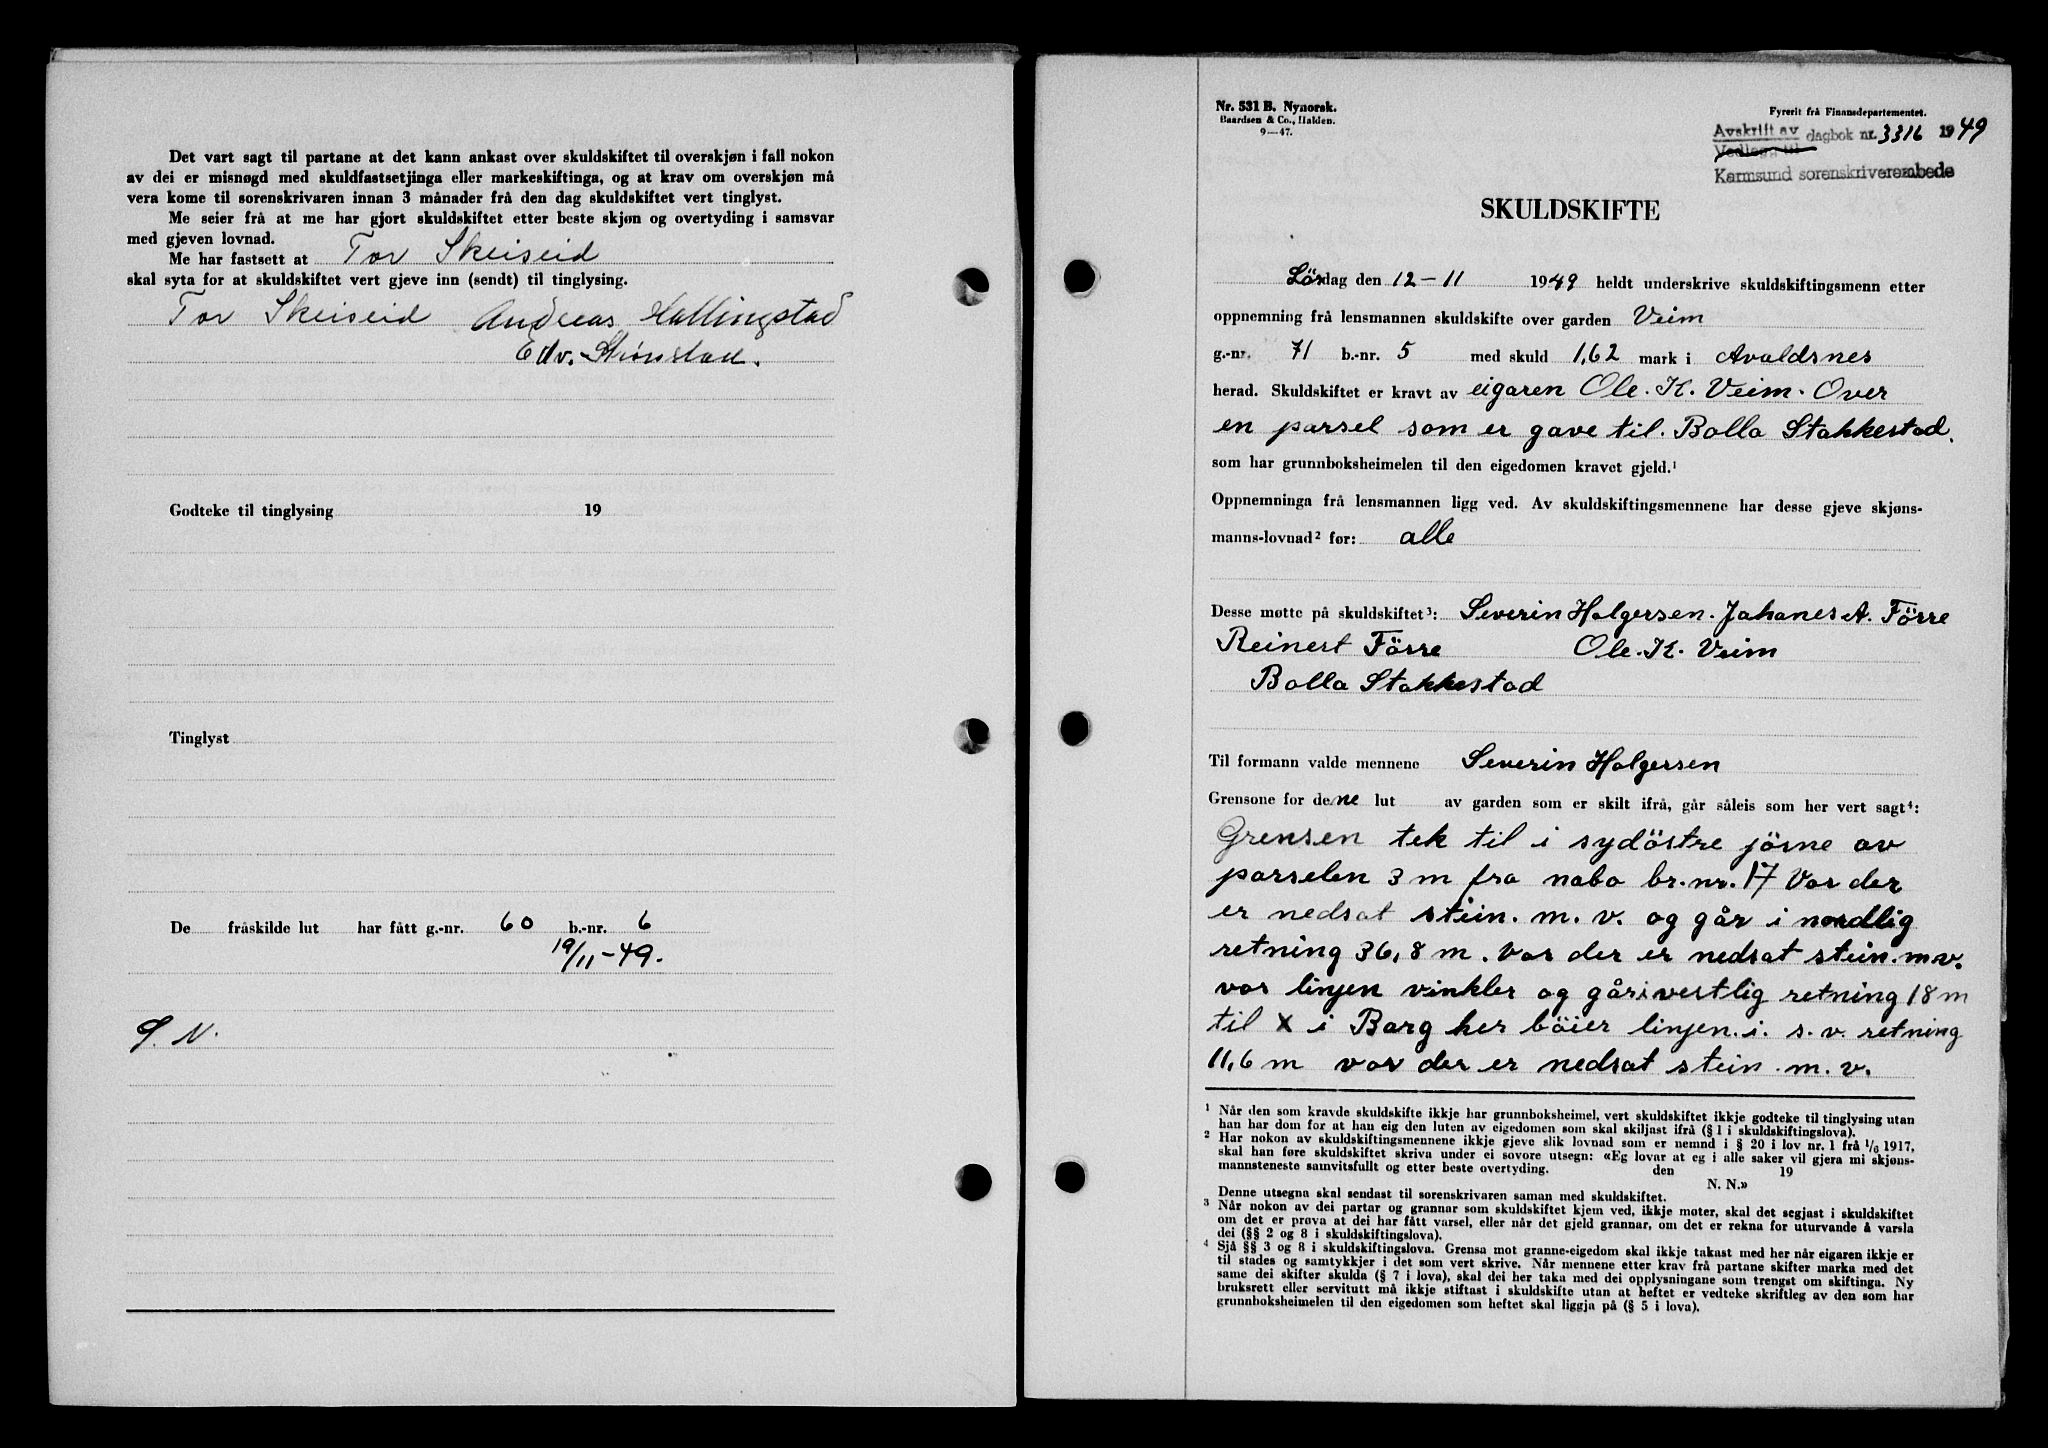 Det vart sagt til partane at det kann ankast over skuldskiftet til overskjøn i fall nokon
av dei er misnøgd med skuldfastsetjinga eller markeskiftinga, og at krav om overskjøn må
vera kome til sorenskrivaren innan 3 månader frå den dag skuldskiftet vert tinglyst.
Me seier frå at me har gjort skuldskiftet etter beste skjøn og overtyding i samsvar
med gjeven lovnad.
Me har fastsett at Tor Skeiseid
skal syta for at skuldskiftet vert gjeve inn (sendt) til tinglysing.
Tor Skeiseid Andreas Hallingstad
Edv. Stiónstad.
Godteke til tinglysing 19
Tinglyst
De fråskilde lut har fått g.-nr. 60 b.-nr. 6
19/11-49.
S. N.
Nr. 531 B. Nynorsk.
Baardsen & Co., Halden.
9—47.
Fyrerit frå Finansdepartementet.
Avskrift av dagbok nr. 3316 1949
Vedlegg til
Karmsund sorenskriverembede
SKULDSKIFTE
Lördag den 12-11 1949 heldt underskrive skuldskiftingsmenn etter
oppnemning frå lensmannen skuldskifte over garden Veim
g.-nr. 71 b.-nr. 5 med skuld 1,62 mark i Avaldsnes
herad. Skuldskiftet er kravt av eigaren Ole. K. Veim. Over
en parsel som er gave til. Bolla Stakkestad.
som har grunnboksheimelen til den eigedomen kravet gjeld.¹
Oppnemninga frå lensmannen ligg ved. Av skuldskiftingsmennene har desse gjeve skjøns-
manns-lovnad² før: alle
Desse møtte på skuldskiftet³: Severin Holgersen. Johanes A. Förre
Reinert Förre Ole. K. Veim
Bolla Stakkestad
Til formann valde mennene Severin Holgersen
Grensone for dene lut av garden som er skilt ifrå, går såleis som her vert sagt⁴:
Grensen tek til i sydöstre jörne av
parselen 3 m fra nabo br.nr. 17 Var der
er nedsat stein. m. v. og går i nordlig
retning 36,8 m. var der er nedsat stein. m v.
var linjen vinkler og går i vestlig retning 18 m
til X i Barg her böier linjen. i. s. v. retning
11,6 m var der er nedsat stein. m. v.
¹ Når den som kravde skuldskifte ikkje har grunnboksheimel, vert skuldskiftet ikkje godteke til tinglysing utan
han har dom for at han eig den luten av eigedomen som skal skiljast ifrå (§ 1 i skuldskiftingslova).
² Har nokon av skuldskiftingsmennene ikkje gjeve slik lovnad som er nemnd i § 20 i lov nr. 1 frå 1/6 1917,
skal han føre skuldskiftet skriva under ei sovore utsegn: «Eg lovar at eg i alle saker vil gjera mi skjøns-
mannsteneste samvitsfullt og etter beste overtyding. den 19
N. N.»
Denne utsegna skal sendast til sorenskrivaren saman med skuldskiftet.
³ Når nokon av dei partar og grannar som skuldskiftet kjem ved, ikkje møter, skal det segjast i skuldskiftet
om det er prøva at dei har fått varsel, eller når det gjeld grannar, om det er rekna for uturvande å varsla
dei (§§ 2 og 8 i skuldskiftingslova).
⁴ Sjå §§ 3 og 8 i skuldskiftingslova. Grensa mot granne-eigedom skal ikkje takast med her når eigaren ikkje er
til stades og samtykkjer i det som vert skrive. Når mennene etter krav frå partane skifter marka med det
same dei skifter skulda (§ 7 i lova), skal dei her taka med dei opplysningane som trengst om skiftinga. Ny
bruksrett eller servitutt må ikkje stiftast i skuldskifte utan at heftet er vedteke skriftleg av den som har
grunnboksheimelen til den eigedomen som heftet skal liggja på (§ 5 i lova).